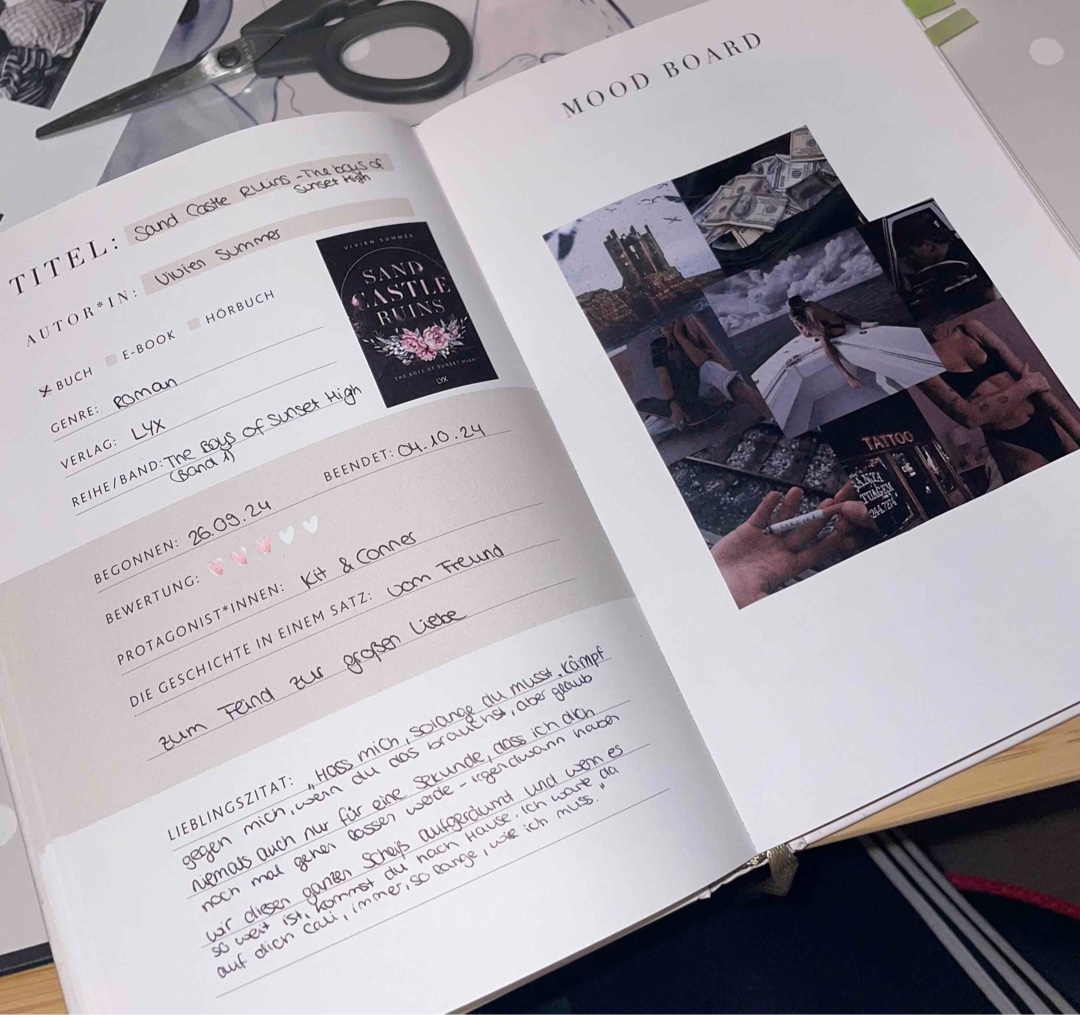 TITEL: Sand Castle Ruins - The boys of
Sunset High
AUTOR*IN: Vivien Summer
BUCH E-BOOK HÖRBUCH
GENRE: Roman
VERLAG: LYX
REIHE/BAND: The Boys of Sunset High
(Band 1)
VIVIEN SUMMER
SAND
CASTLE
RUINS
THE BOYS OF SUNSET HIGH
LYX
BEGONNEN: 26.09.24 BEENDET: 04.10.24
BEWERTUNG:
PROTAGONIST*INNEN: Kit & Conner
DIE GESCHICHTE IN EINEM SATZ: vom Freund
zum Feind zur großen Liebe
LIEBLINGSZITAT: „Hass mich, solange du musst. Kämpf
gegen mich, wenn du das brauchst, aber glaub
niemals auch nur für eine Sekunde, dass ich dich
noch mal gehen lassen werde - irgendwann haben
wir diesen ganzen Scheiß aufgeräumt und wenn es
so weit ist, kommst du nach Hause. Ich warte da
auf dich Cali, immer, so lange, wie ich muss."
MOOD BOARD
TATTOO